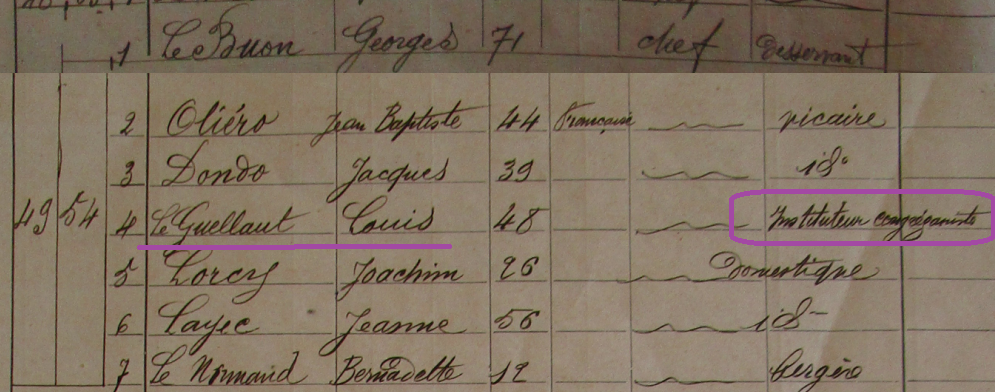 1 Le Buon Georges 71 chef Desservant
2 Oliéro Jean Baptiste 44 Française vicaire
3 Dondo Jacques 39 id°
49 54 4 Le Guellaut Louis 48 Instituteur congréganiste
5 Lorcy Joachim 26 Domestique
6 Layec Jeanne 56 id
7 Le Normand Bernadette 12 Bergère